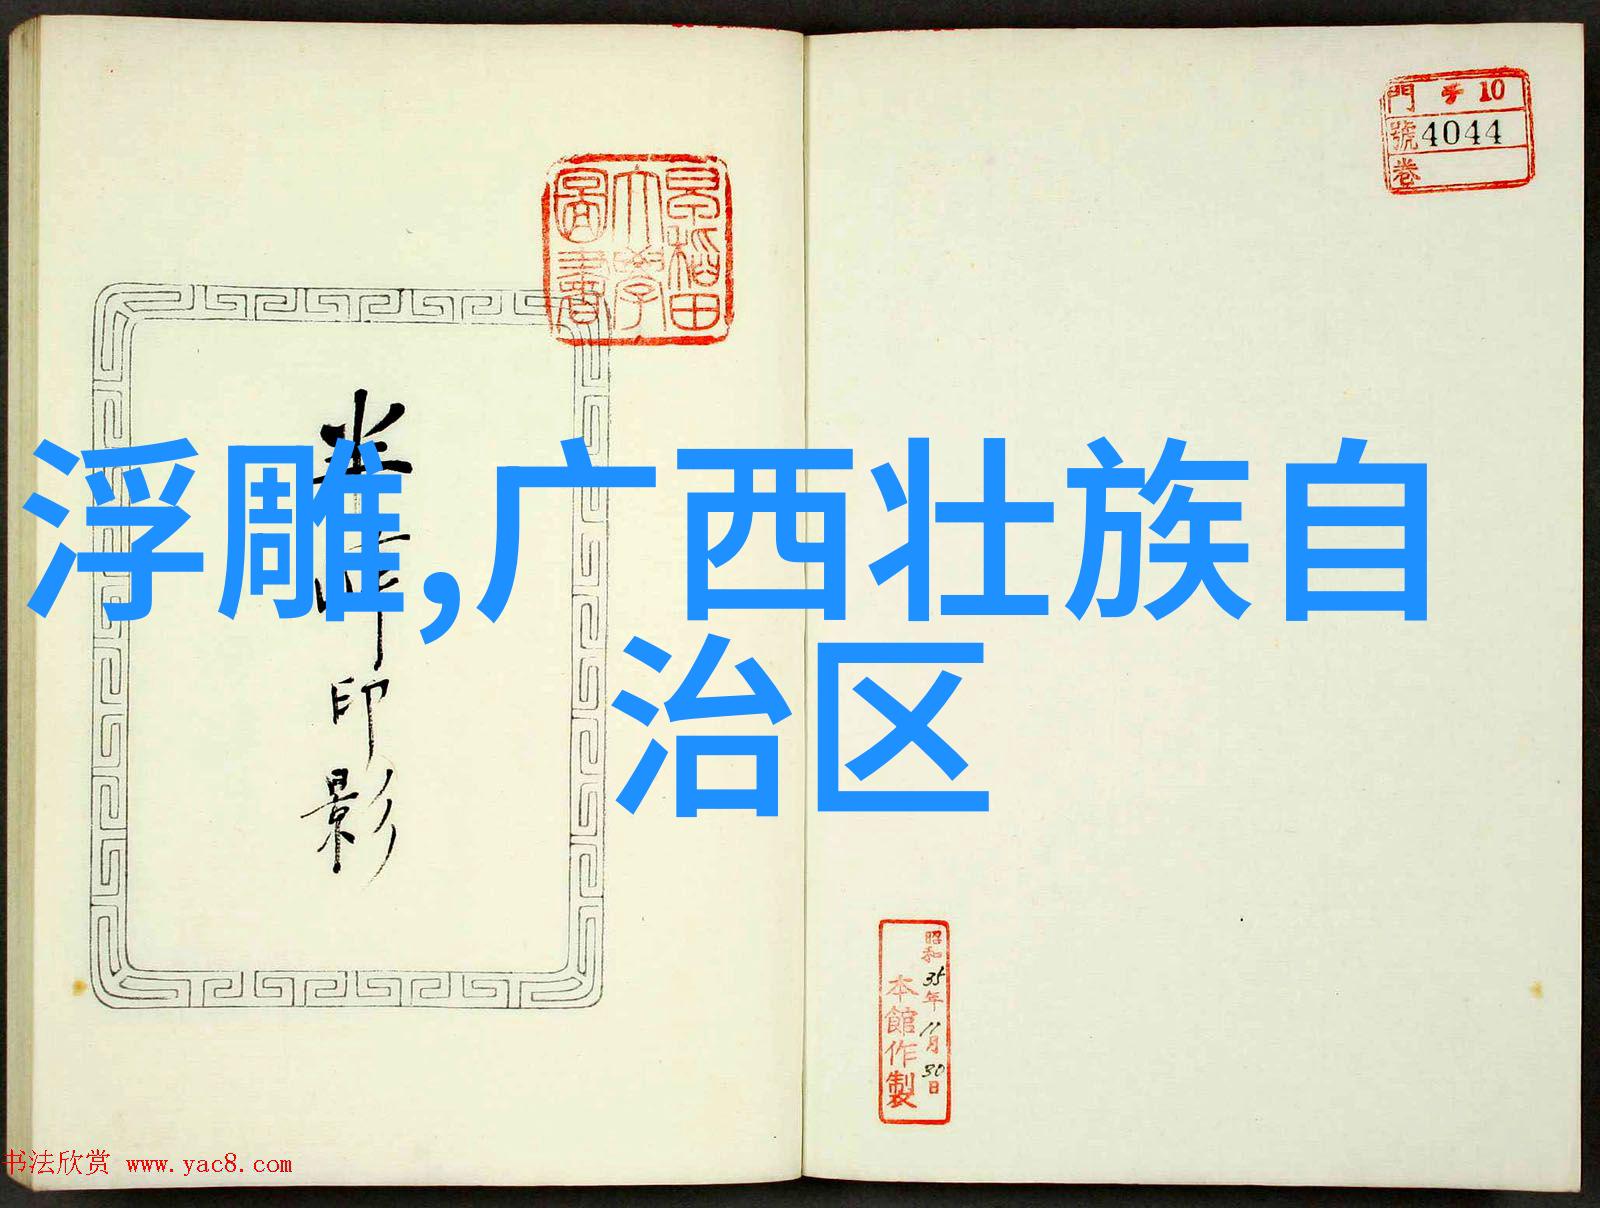 門 チ 10
號 4044
卷
早稲田
大學
圖書
浮雕,广西壮族自
治区
印影
昭和35年11月30日
本館作製
书法欣赏 www.yac8.com